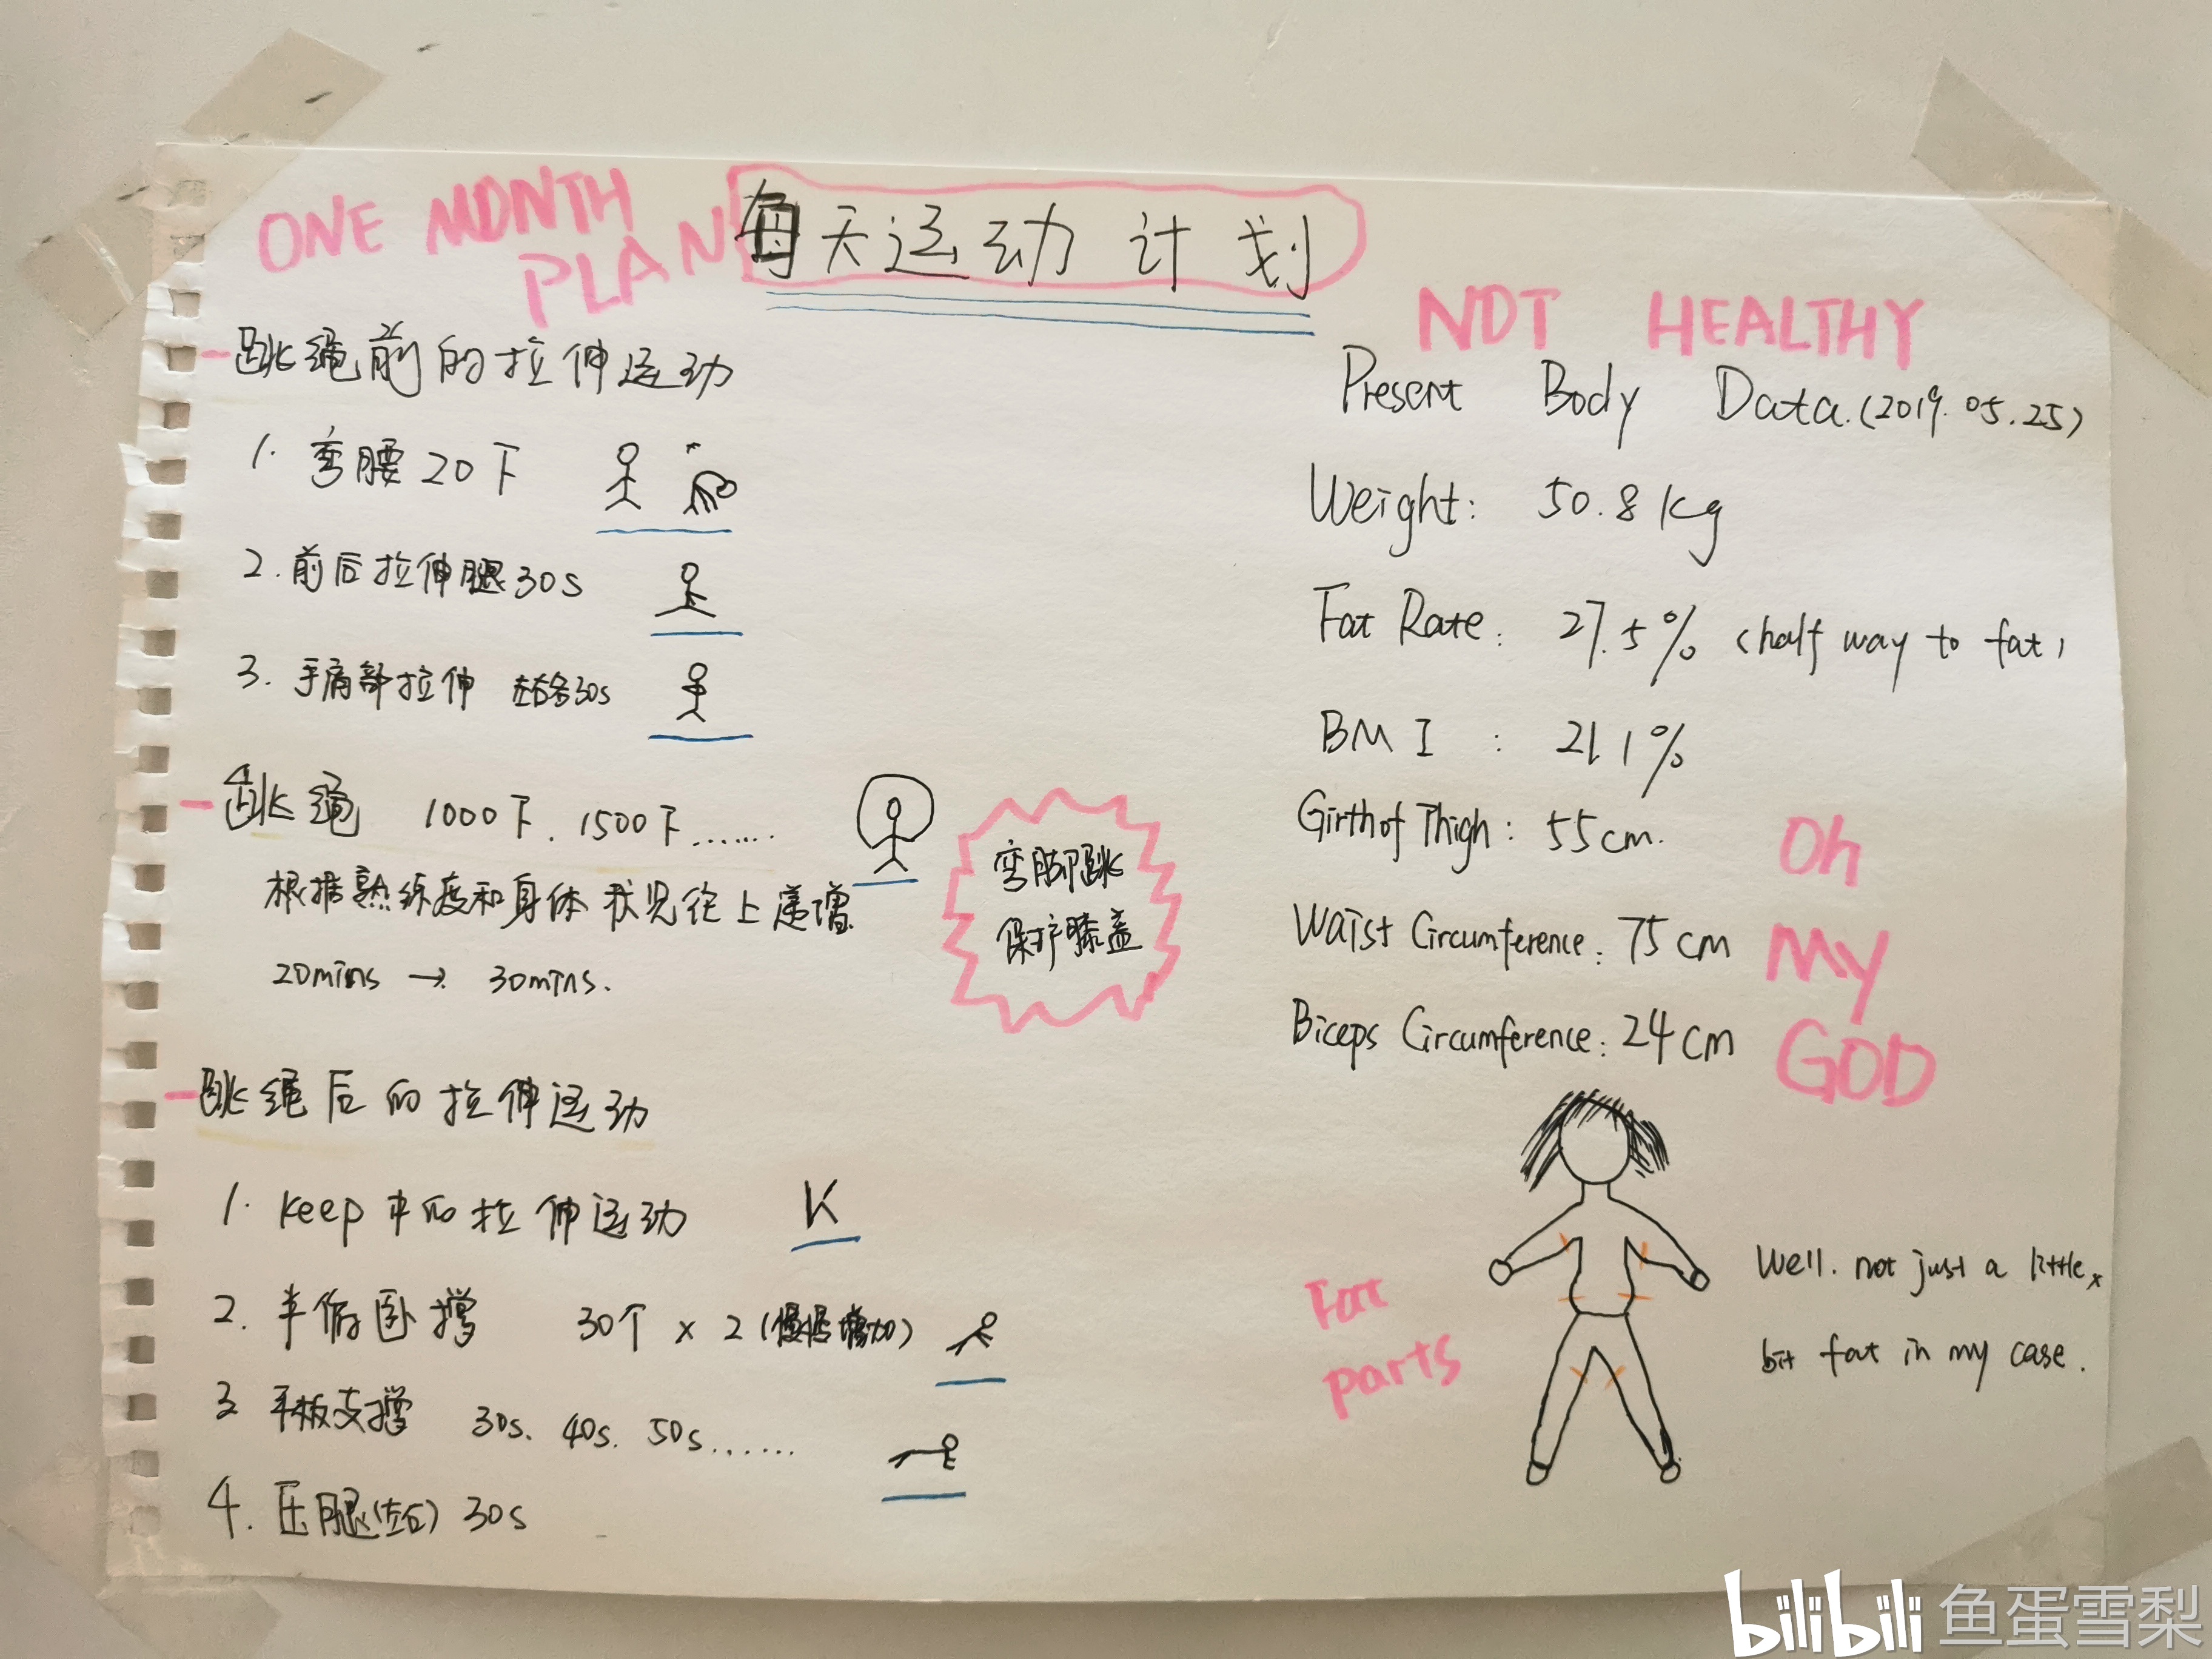 ONE MONTH PLAN
每天运动计划
跳绳前的拉伸运动
1. 弯腰20下
2. 前后拉伸腿30s
3. 手肩部拉伸 左右各30s
跳绳 1000下、1500下……
根据熟练度和身体状况往上递增
20mins → 30mins.
弯脚跳
保护膝盖
跳绳后的拉伸运动
1. keep中的拉伸运动 K
2. 半俯卧撑 30个 × 2 (慢慢增加)
3 平板支撑 30s、40s、50s……
4. 压腿(左右) 30s
NOT HEALTHY
Present Body Data.(2019.05.25)
Weight: 50.8kg
Fat Rate: 27.5% (half way to fat)
BMI : 21.1%
Girth of Thigh: 55cm.
Waist Circumference: 75cm
Biceps Circumference: 24cm
Oh
My
GOD
Fat
parts
Well. not just a little
bit fat in my case.
bilibili 鱼蛋雪梨